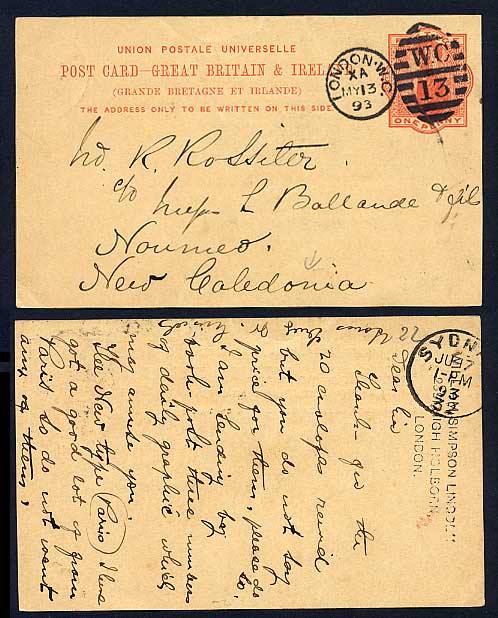 UNION POSTALE UNIVERSELLE
POST CARD—GREAT BRITAIN & IREL
(GRANDE BRETAGNE ET IRLANDE)
THE ADDRESS ONLY TO BE WRITTEN ON THIS SIDE.
LONDON·W.C.
XA
MY13
93
W.C
13
ONE PENNY
R. Rossiter
c/o Messrs L Ballande & fils
Noumea.
New Caledonia
22
Dear Sir
Thanks for the
20 envelopes recvd
but you do not say
price for them, please do
so.
I am sending by
book-post three numbers
of daily graphic which
may amuse you.
The New type Paris I have
got a good lot of from
Paris so do not want
any of them,
SYDN
JU 27
1- PM
93
SIMPSON LINCOLN
HIGH HOLBORN,
LONDON.